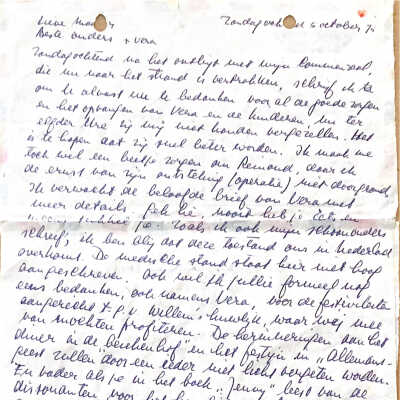 Lieve
Beste ouders + Vera
Zondagochtend na het ontbijt met mijn commensaal,
die nu naar het strand is vertrokken, schrijf ik
om te bedanken voor al de goede zorgen
en het opvangen van Vera en de kinderen,
zij mij niet konden vergezellen. Het
is te hopen dat zij snel beter worden. Ik maak me
toch wel een beetje zorgen om Reinoud, daar ik
de ernst van zijn ontsteking (operatie) niet doorgrond.
Ik verwacht de beloofde brief van Vera met
meer details.
zoals ik ook mijn schoonouders
schreef, ik ben blij dat deze toestand ons in Nederland
overkomt. De medische stand staat hier niet hoog
aangeschreven. Ook wil ik jullie formeel nog
eens bedanken, ook namens Vera, voor de festiviteiten
aangericht t.g.v. Willem's huwelijk, waar wij mee
van mochten profiteren. De herinneringen aan het
diner in de beichenhof en het festijn in "Allemans-
geest zullen door een ieder niet licht vergeten worden.
En vader als je in het boek "Jenny" leest van de
dissonanten voor het